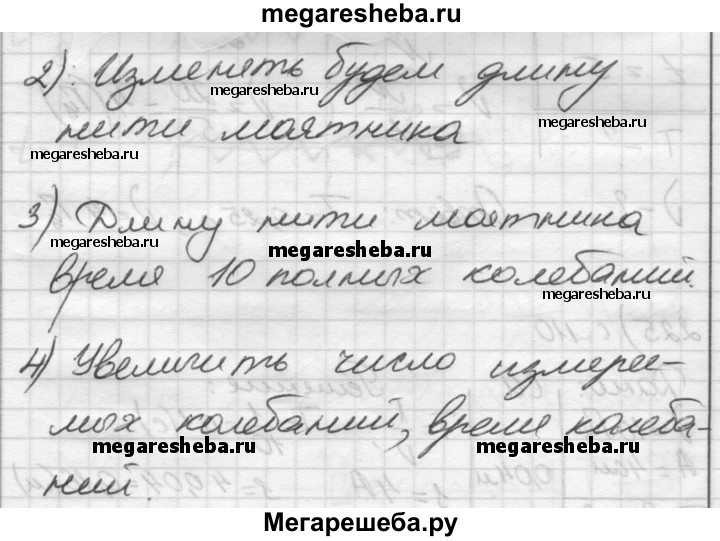 megaresheba.ru
2). Изменять будем длину
megaresheba.ru
нити маятника
megaresheba.ru
megaresheba.ru
3) Длину нити маятника
megaresheba.ru
megaresheba.ru
время 10 полных колебаний.
megaresheba.ru
4) Увеличить число измеряе-
мых колебаний, время колеба-
megaresheba.ru
megaresheba.ru
ний.
Мегарешеба.ру